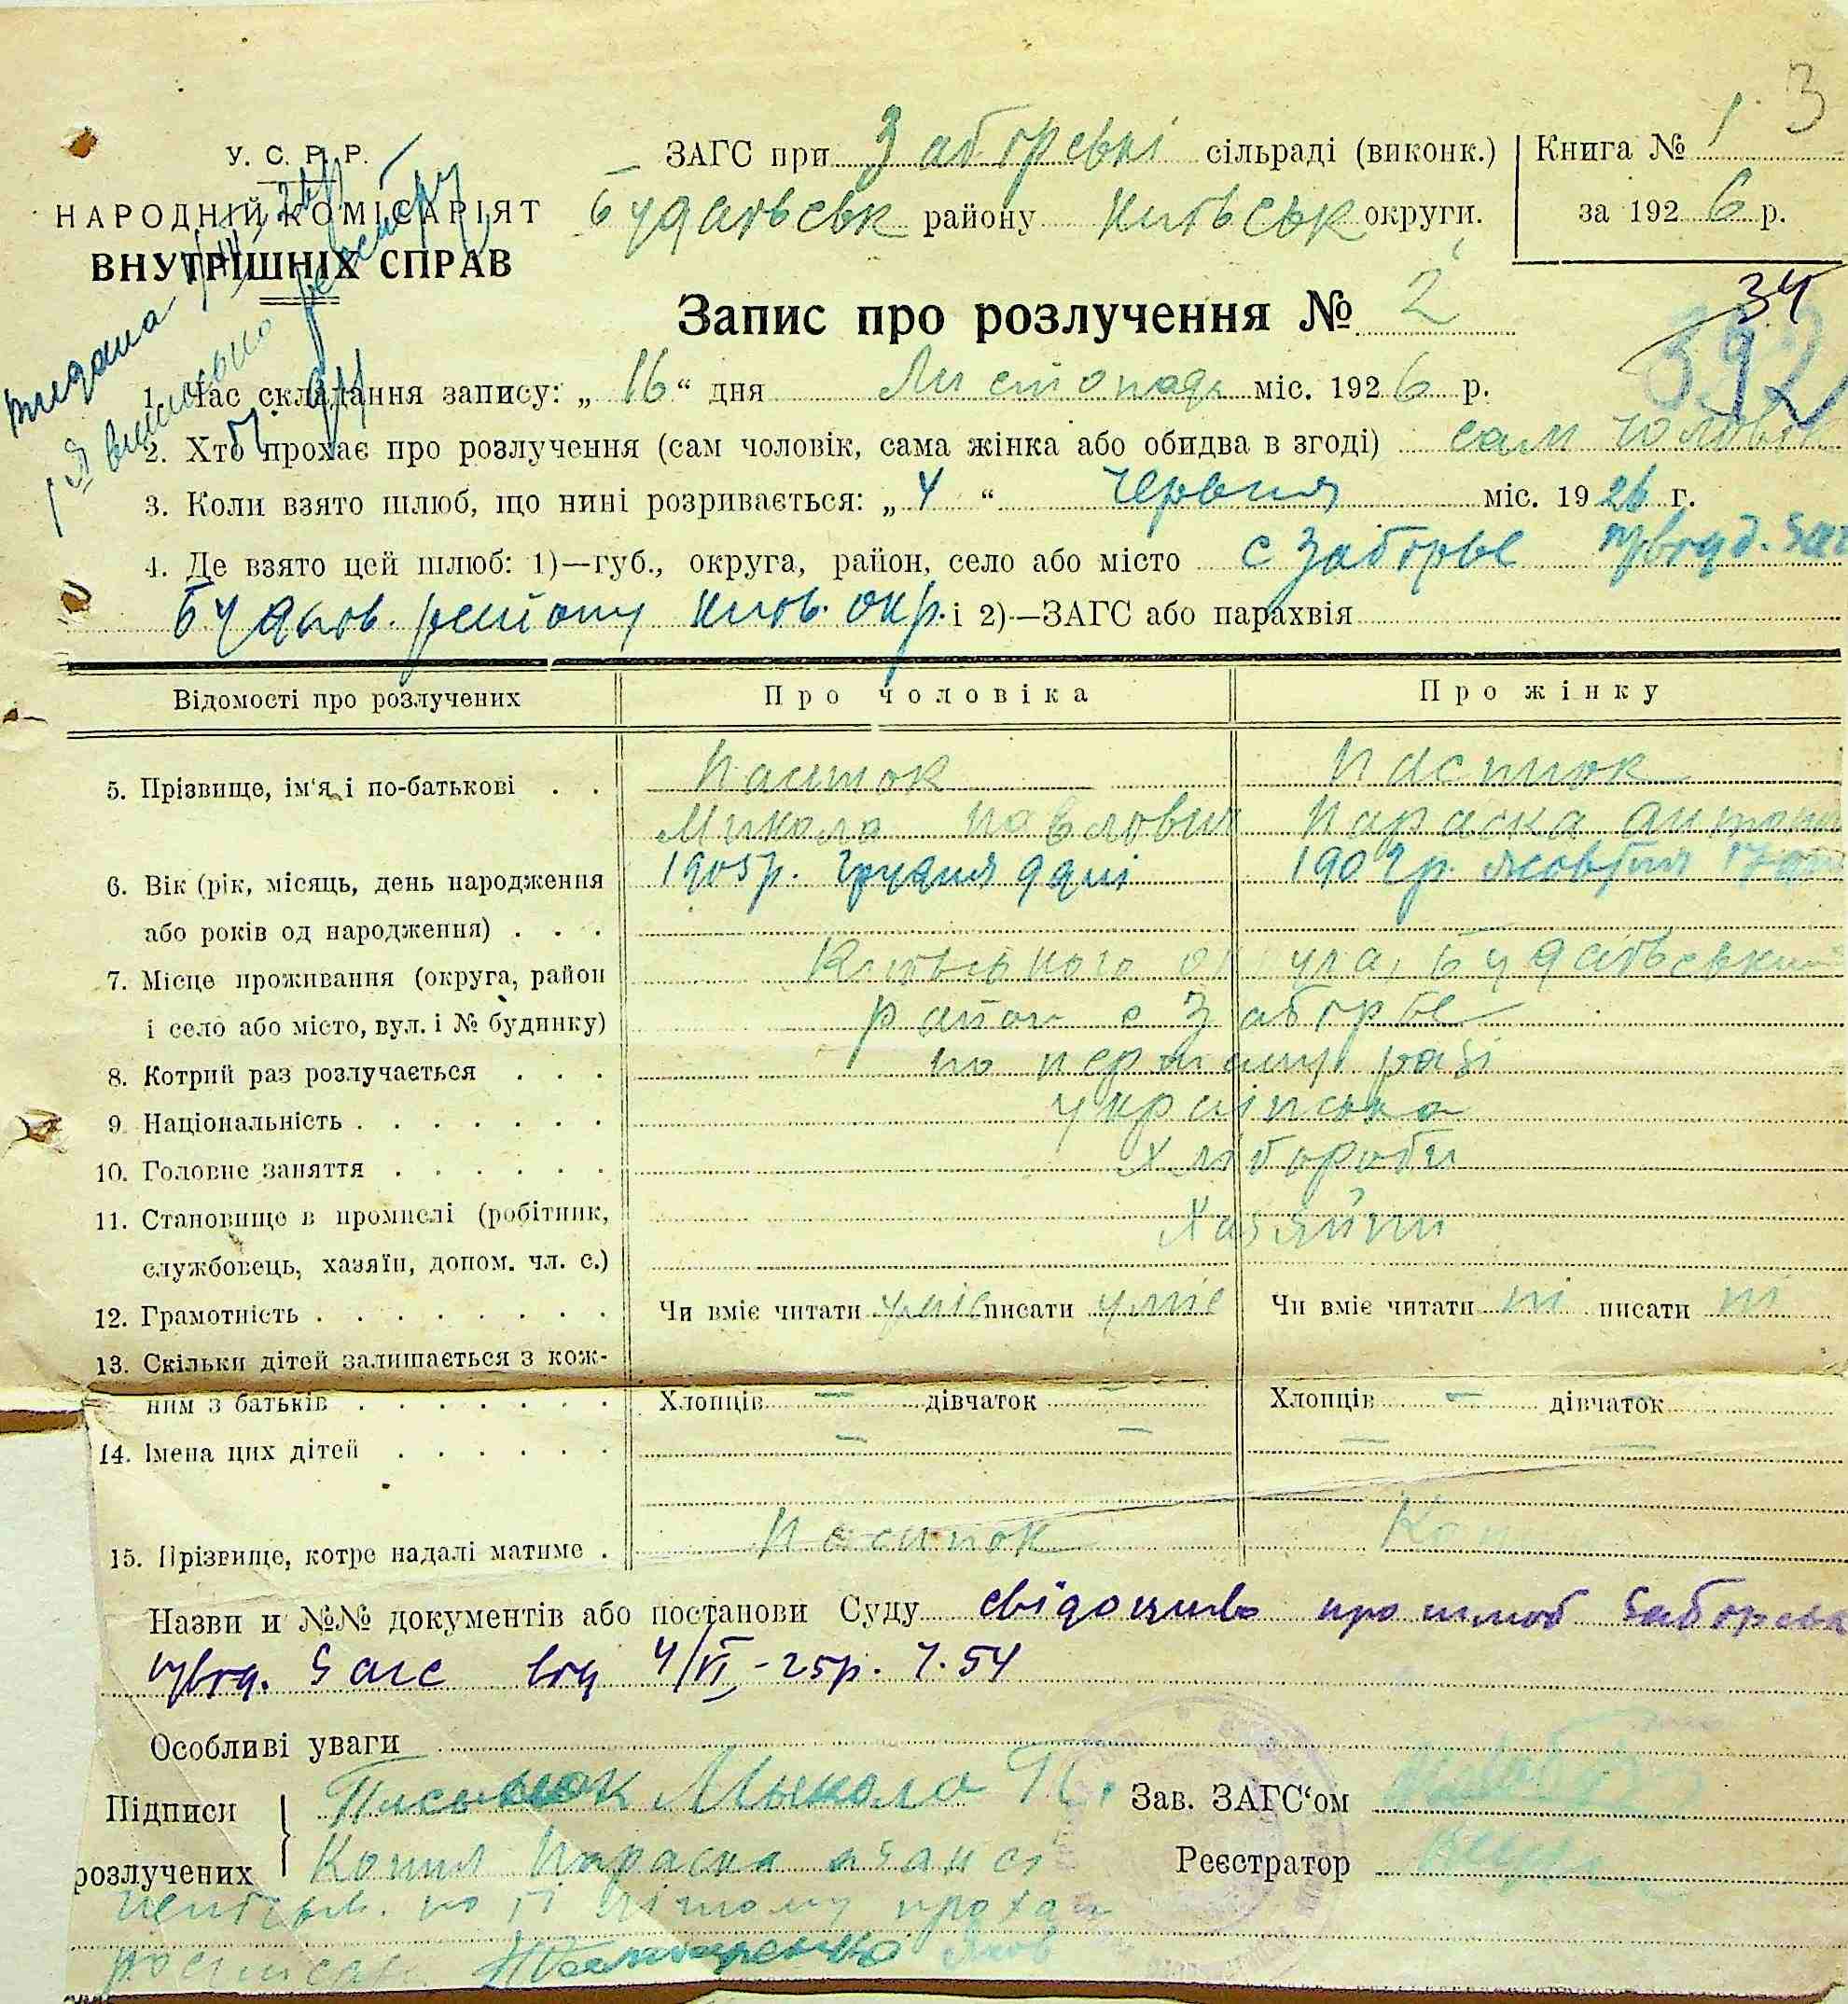 3
У. С. Р. Р.
НАРОДНІЙ КОМІСАРІЯТ
ВНУТРІШНІХ СПРАВ
ЗАГС при Заборські сільраді (виконк.)
Будаївськ району Київськ округи.
Книга № 1
за 1926 р.
Запис про розлучення № 2
34
392
видана
1. Час складання запису: „16“ дня Листопада міс. 1926 р.
2. Хто прохає про розлучення (сам чоловік, сама жінка або обидва в згоді) сам чоловік
3. Коли взято шлюб, що нині розривається: „4“ Червня міс. 1926 г.
4. Де взято цей шлюб: 1)—губ., округа, район, село або місто с Заборье
Будаїв. району Київ. окр. і 2)—ЗАГС або парахвія
Відомості про розлучених
Про чоловіка
Про жінку
5. Прізвище, ім'я і по-батькові . .
Пасток
Микола Павлович
Пастюк
Параска
6. Вік (рік, місяць, день народження
або років од народження) . . .
1905р. Грудня 9 дні
1902р. жовтня 17
7. Місце проживання (округа, район
і село або місто, вул. і № будинку)
Київського Будаївський
район с Заборье
8. Котрий раз розлучається . . .
по першому разі
9. Національність . . . . . . .
українська
10. Головне заняття . . . . . .
Хлібороби
11. Становище в промислі (робітник,
службовець, хазяїн, допом. чл. с.)
Хазяйни
12. Грамотність . . . . . . . .
Чи вміє читати уміє писати уміє
Чи вміє читати ні писати ні
13. Скільки дітей залишається з кож-
ним з батьків . . . . . . .
Хлопців — дівчаток —
Хлопців — дівчаток —
14. Імена цих дітей . . . . . .
— —
— —
15. Прізвище, котре надалі матиме .
Пасток
Назви и №№ документів або постанови Суду свідоцтво про шлюб
Загс від 4/VI-25р. ч. 54
Особливі уваги
Підписи
розлучених
Микола П.
Параска
Зав. ЗАГС'ом
Реєстратор